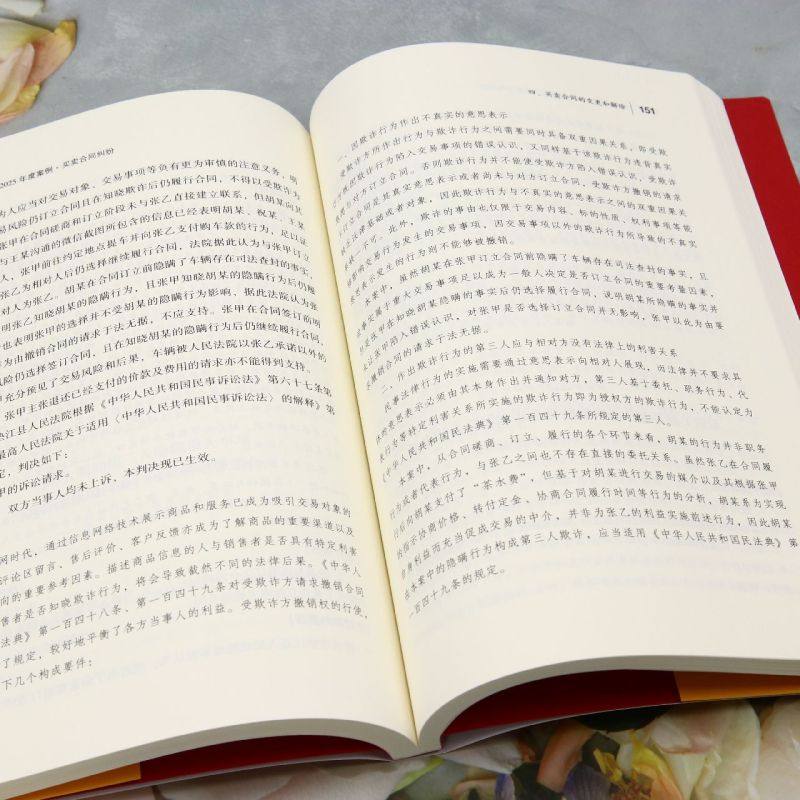 2025年度案例·买卖合同纠纷
为人应当对交易对象、交易事项等负有更为审慎的注意义务,明
易风险仍订立合同且在知晓欺诈后仍履行合同,不得以受欺诈为
张甲在合同磋商和订立阶段未与张乙直接建立联系,但胡某向其
与王某沟通的微信截图所包含的信息已经表明胡某、祝某、王某
人,张甲前往约定地点提车并向张乙支付购车款的行为,足以证
张乙为相对人后仍选择继续履行合同,法院据此认为与张甲订立
对人为张乙。胡某在合同订立前隐瞒了车辆存在司法查封的事实,
明张乙知晓胡某的隐瞒行为,且张甲知晓胡某的隐瞒行为后仍履
也表明张甲的选择并不受胡某的隐瞒行为影响,据此法院认为张
为由撤销合同的请求于法无据,不应支持。张甲在合同签订前明
风险仍选择签订合同,且在知晓胡某的隐瞒行为后仍继续履行合同,
甲充分预见了交易风险和后果,车辆被人民法院以张乙承诺以外的
张甲主张退还已经支付的价款及费用的请求亦不能得到支持。
江县人民法院根据《中华人民共和国民事诉讼法》第六十七条第
最高人民法院关于适用〈中华人民共和国民事诉讼法〉的解释》第
定,判决如下:
甲的诉讼请求。
双方当事人均未上诉,本判决现已生效。
网时代,通过信息网络技术展示商品和服务已成为吸引交易对象的
评论区留言、售后评价、客户反馈亦成为了解商品的重要渠道以及
向的重要参考因素。描述商品信息的人与销售者是否具有特定利害
售者是否知晓欺诈行为,将会导致截然不同的法律后果。《中华人
法典》第一百四十八条、第一百四十九条对受欺诈方请求撤销合同
了规定,较好地平衡了各方当事人的利益。受欺诈方撤销权的行使,
下几个构成要件:
四、买卖合同的变更和解除 151
一、因欺诈行为作出不真实的意思表示
受欺诈方所作出行为与欺诈行为之间需要同时具备双重因果关系,即受欺
诈方既因欺诈行为陷入交易事项的错误认识,又同样基于该欺诈行为违背真实
意思表示与对方订立合同。否则欺诈行为并不能使受欺诈方陷入错误认识,受欺诈
方订立合同是其真实意思表示或者尚未与对方订立合同,受欺诈方撤销的请求
缺乏法律基础或者对象,因此欺诈行为与不真实的意思表示之间的双重因果关
系缺一不可。此外,欺诈的事由也仅限于交易内容、标的性质、权利事项等能
够影响交易行为发生的交易事项,因交易事项以外的欺诈行为所导致的不真实
意思表示发生的行为则不能够被撤销。
本案中,虽然胡某在张甲订立合同前隐瞒了车辆存在司法查封的事实,且
该事实属于重大交易事项足以成为一般人决定是否订立合同的重要考量因素,
但是张甲在知晓胡某隐瞒的事实后仍选择履行合同,说明胡某所隐瞒的事实并
未让张甲陷入错误认识,对张甲是否选择订立合同并无影响,张甲以此为由要
求撤销合同的请求于法无据。
二、作出欺诈行为的第三人应与相对方没有法律上的利害关系
民事法律行为的实施需要通过意思表示向相对人展现,而法律并不要求具
体的意思表示必须由其本身作出并通知对方,第三人基于委托、职务行为、代
表行为等特定利害关系所实施的欺诈行为即为授权方的欺诈行为,不能认定为
《中华人民共和国民法典》第一百四十九条所规定的第三人。
本案中,从合同磋商、订立、履行的各个环节来看,胡某的行为并非职务
行为或者代表行为,与张乙之间也不存在直接的委托关系。虽然张乙在合同履
行后向胡某支付了“茶水费”,但基于对胡某进行交易的媒介以及其根据张甲
的指示协商价格、转付定金、协商合同履行时间等行为的分析,胡某系为实现
自身利益而充当促成交易的中介,并非为张乙的利益实施前述行为,因此胡某
在本案中的隐瞒行为构成第三人欺诈,应当适用《中华人民共和国民法典》第
一百四十九条的规定。